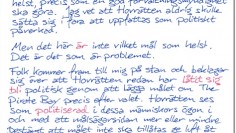 helst, precis som en god förvaltningsmyndighet
ska göra. Jag vet att Hovrätten aldrig skulle
sätta sig i fara att uppfattas som politiskt
påverkad.
Men det här är inte vilket mål som helst.
Det är det som är problemet.
Folk kommer fram till mig på stan och beklagar
sig över att Hovrätten redan har låtit sig
bli politisk genom att lägga målet om The
Pirate Bay precis efter valet. Hovrätten ses
som politiserad i dessa människors ögon i
och med att målsägarsidan mer eller mindre
begärt att målet inte ska tillåtas ge luft åt